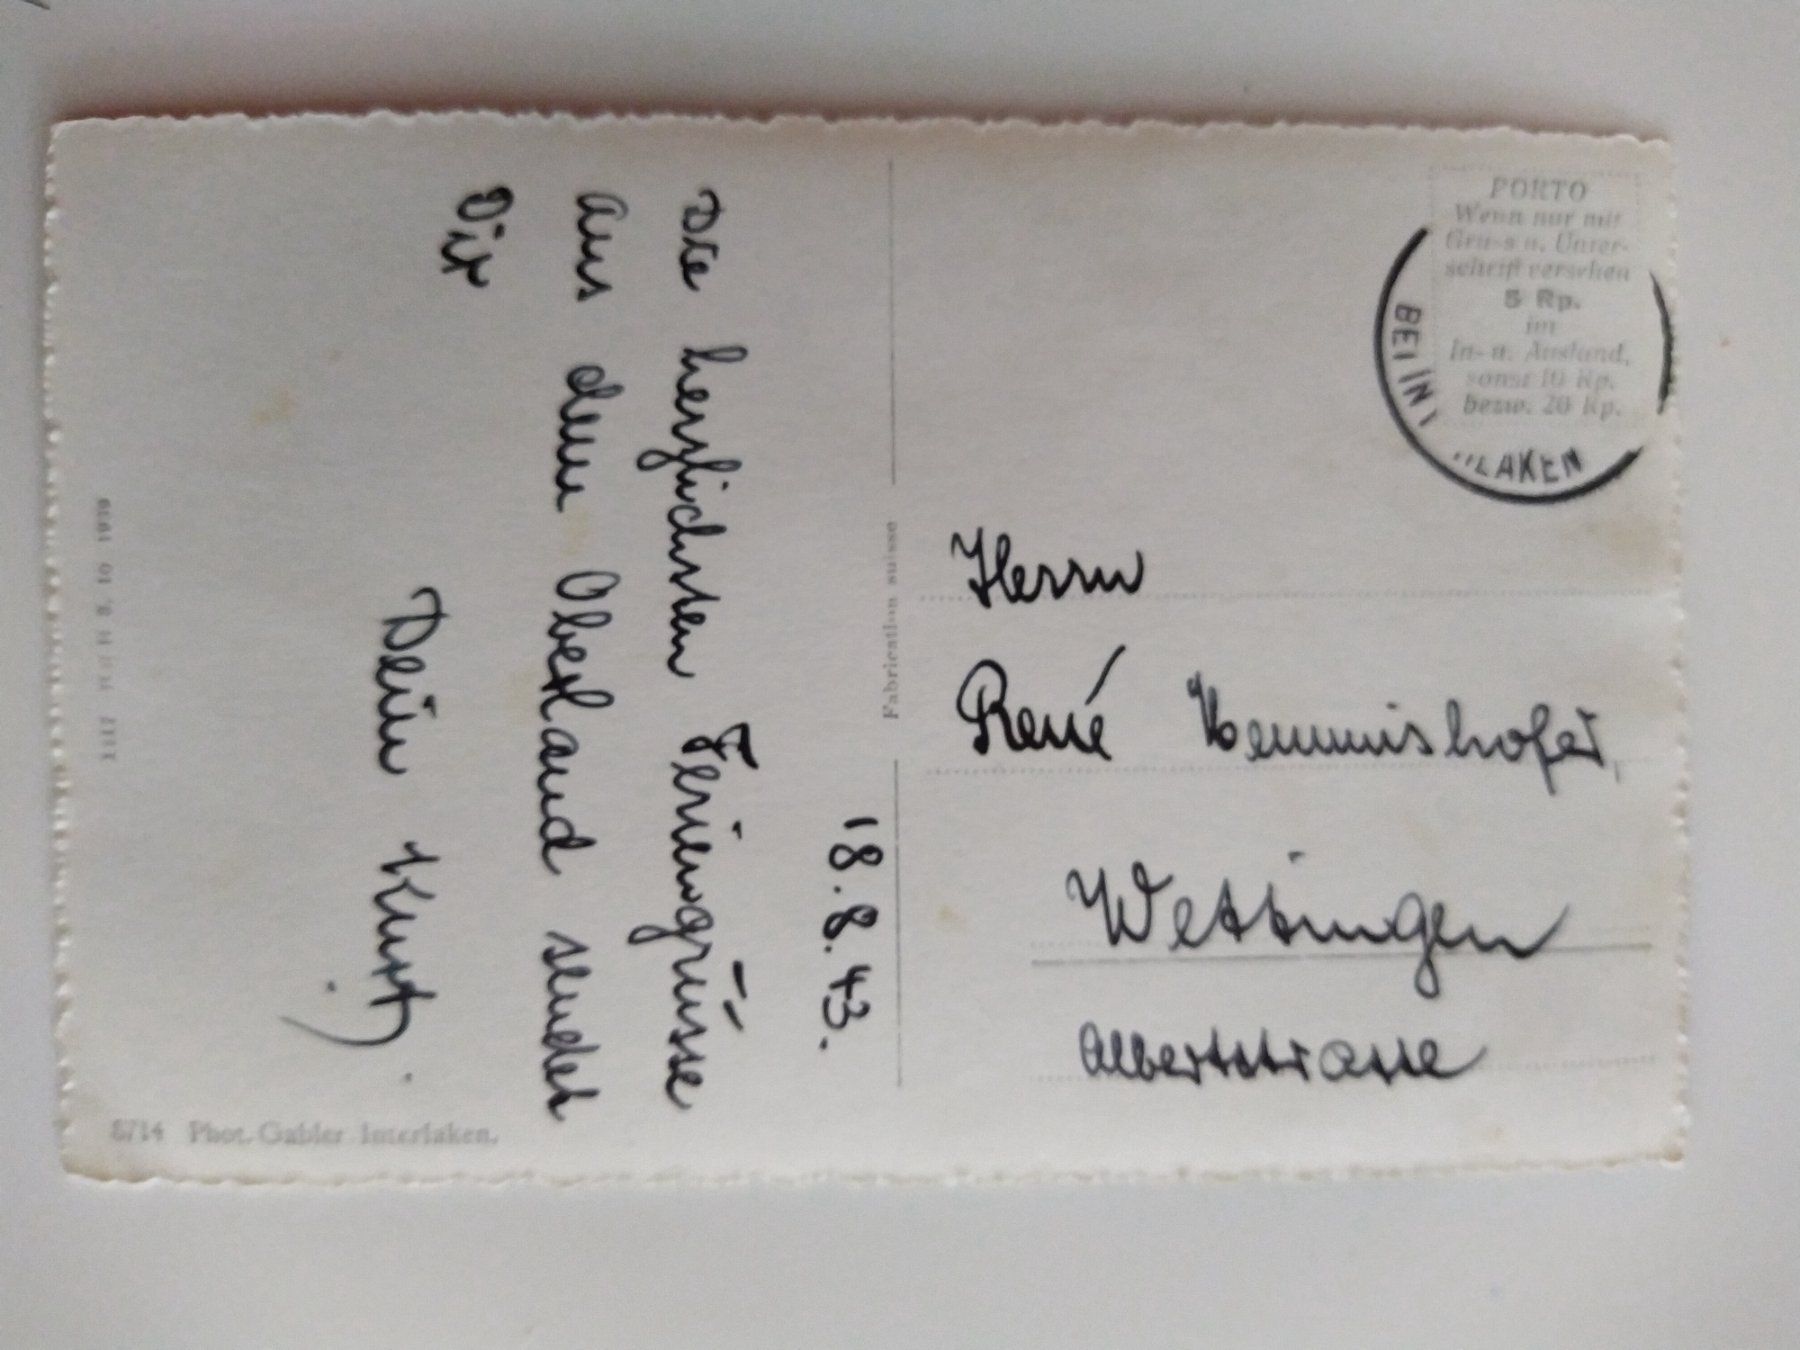 18.8.43.
Die herzlichsten Feriengrüsse
aus dem Oberland sendet
Dir
Dein Kurt.
8714 Phot. Gabler Interlaken.
Fabrication suisse
PORTO
Wenn nur mit
Gruss u. Unter-
schrift versehen
5 Rp.
im
In- u. Ausland,
sonst 10 Rp.
bezw. 20 Rp.
BEI IN LAKEN
Herrn
René Hemmishofer,
Wettingen
Albertstrasse